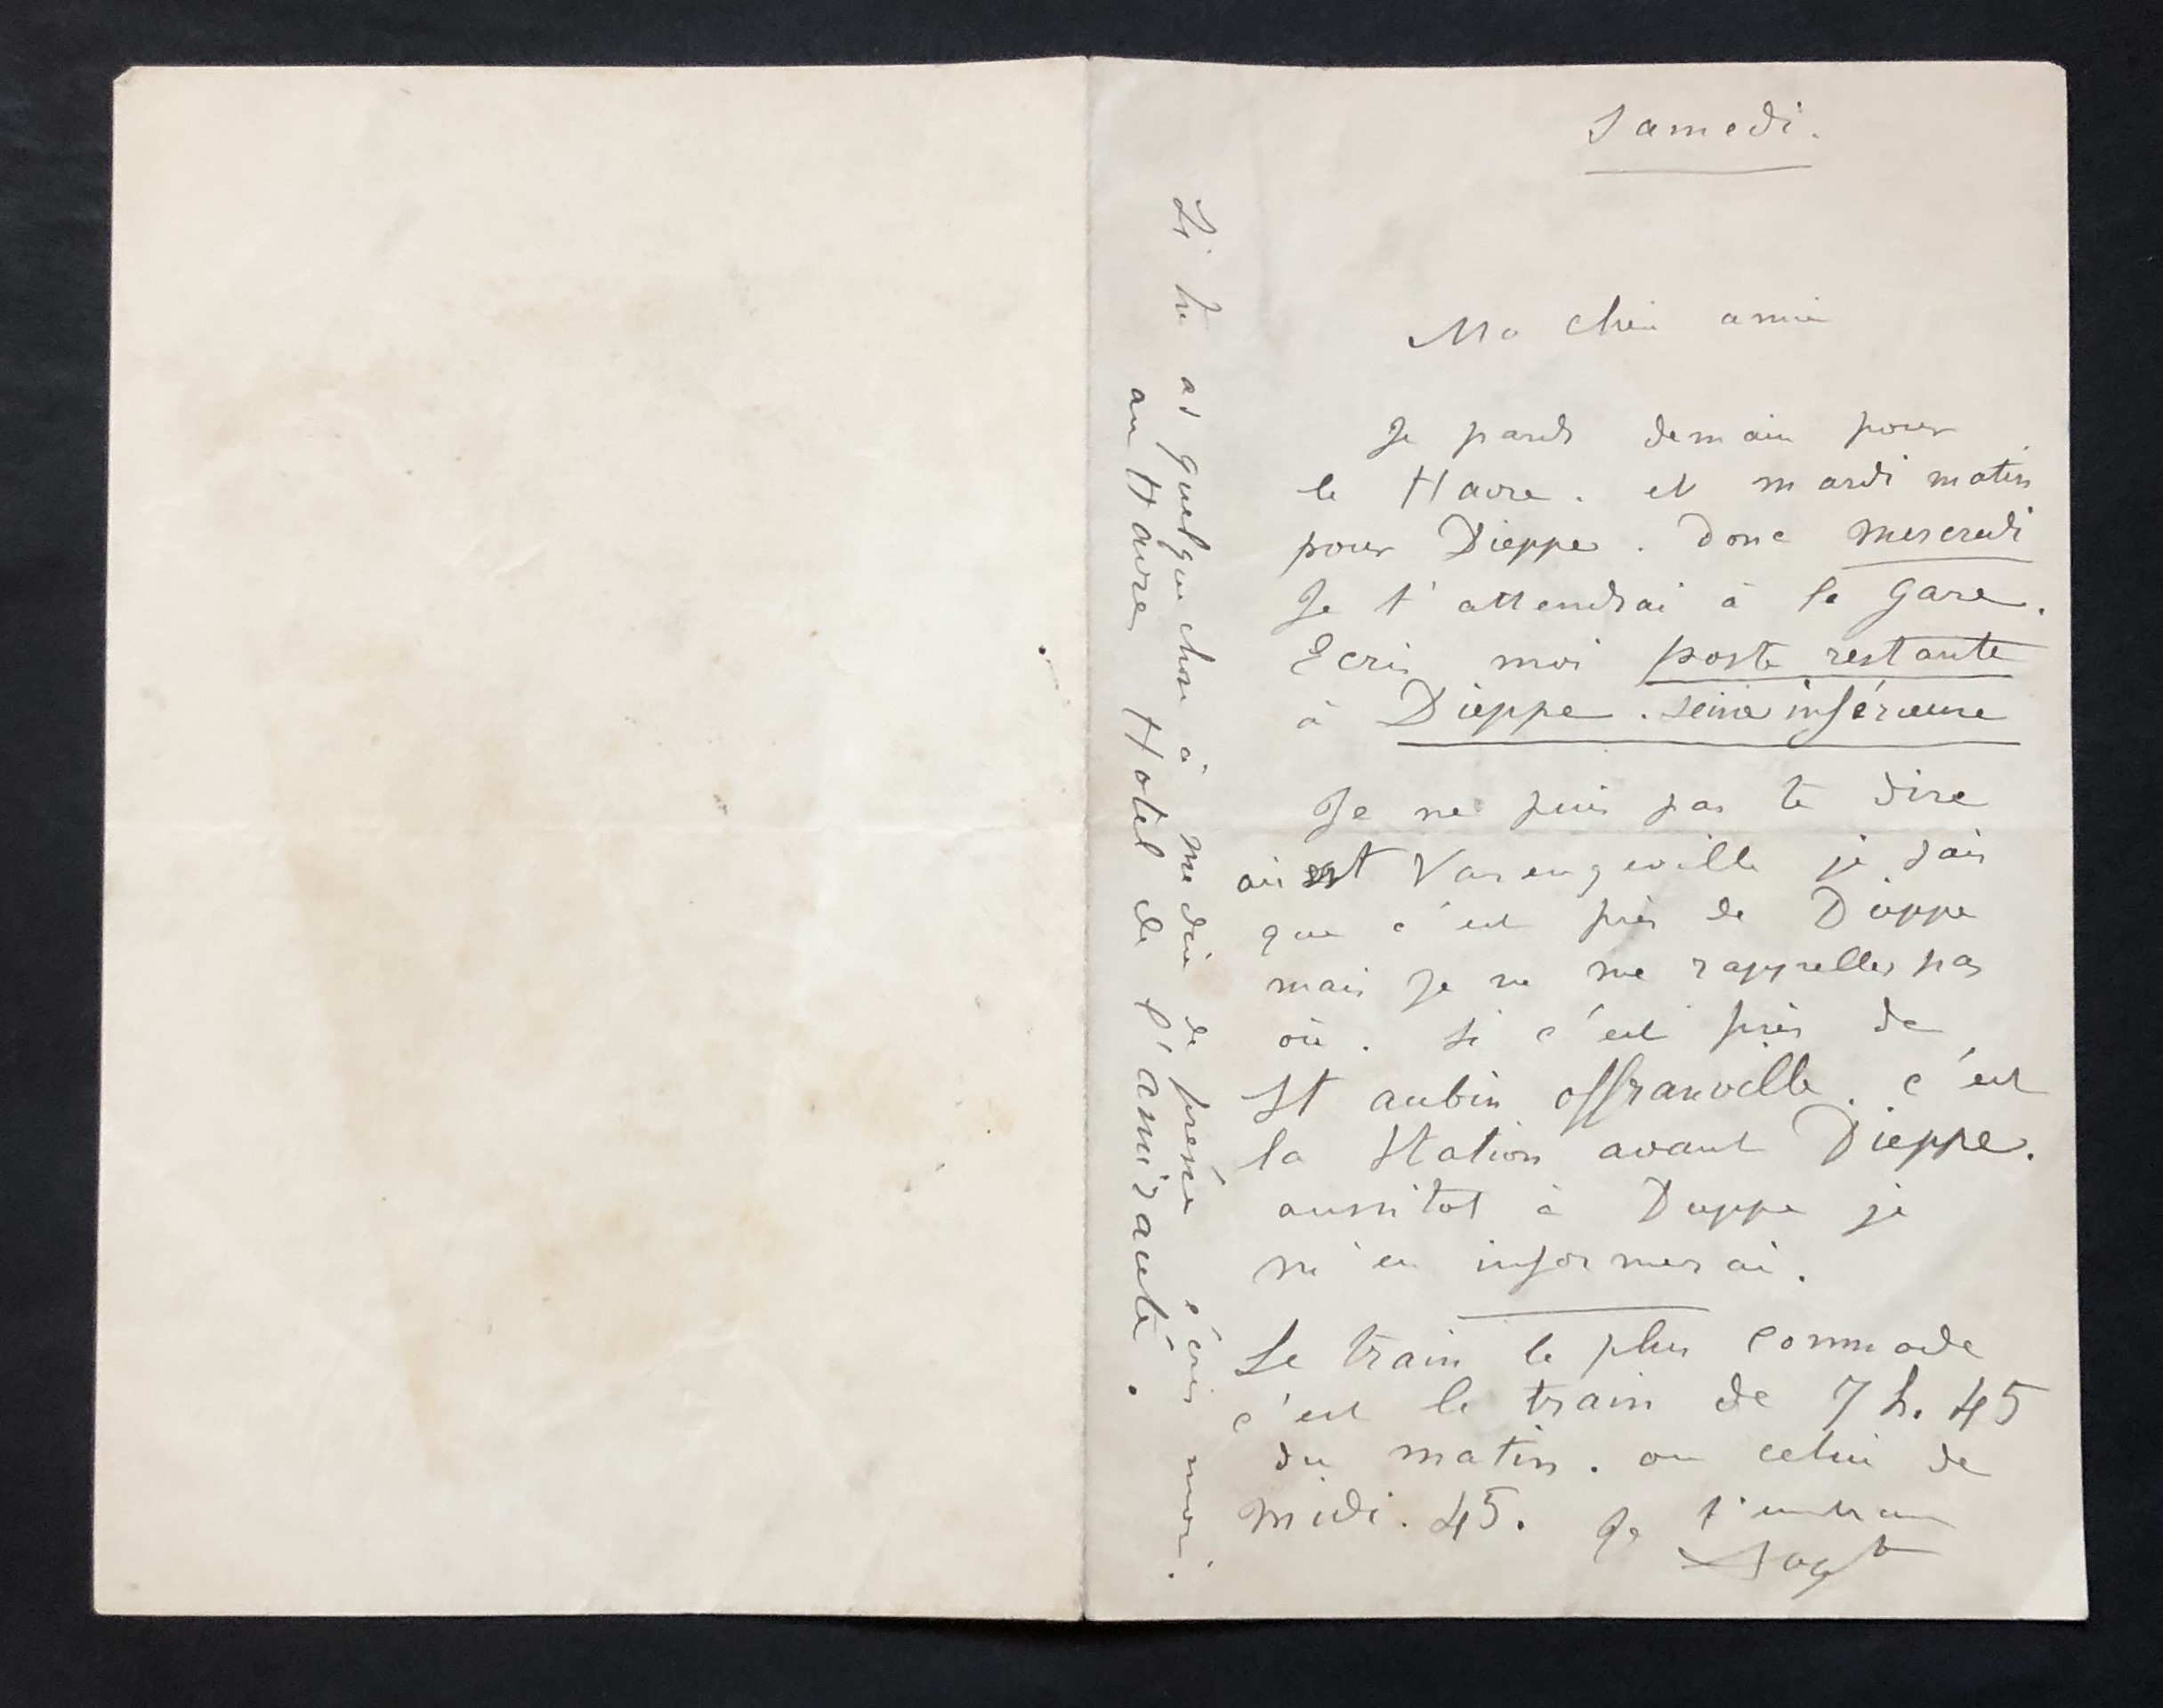 Samedi.
Ma chère amie
Je pards demain pour
le Havre. et mardi matin
pour Dieppe. Donc mercredi
Je t'attendrai à la gare.
Ecris moi poste restante
à Dieppe. Seine inférieure
Je ne puis pas te dire
où est Varengeville je sais
que c'est près de Dieppe
mais Je ne me rappelles pas
où. Si c'est près de
St aubin offranville. c'est
la Station avant Dieppe.
aussitot à Dieppe je
m'en informerai.
Le train le plus commode
c'est le train de 7 h. 45
du matin. ou celui de
midi. 45. Je t'embrasse
Si tu as quelque chose à me dire de pressée écris moi.
au Havre Hotel de l'amirauté.